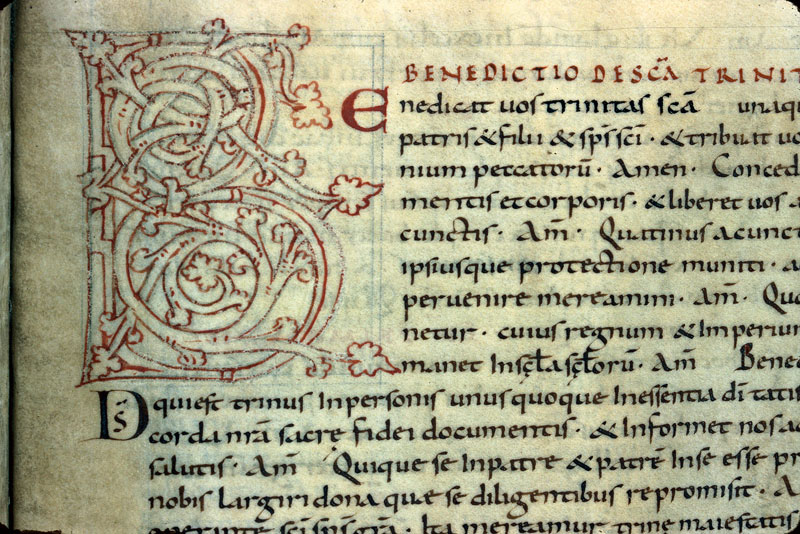 BENEDICTIO DE SC̄A TRINIT
Enedicat uos trinitas sc̄a unaq
patris & filii & sp̄s sc̄i · & tribuat uo
nium peccatorū · Amen · Conced
mentis et corporis · & liberet uos a
cunctis · Am̄ · Quatinus a cunct
ipsiusque protectione muniti · a
peruenire mereamini · Am̄ · Quo
netur · cuius regnum & Imperium
manet In sc̄la sc̄lorū · Am̄ Bened
D̄s qui est trinus In personis unus quoque In essentia di tatis
corda nr̄a sacre fidei documentis · & Informet nos ad
salutis · Am̄ Quique se In patre & patrē In se esse pr
nobis largiri dona quæ se diligentibus repromisit · A
sc̄i sp̄s gr̄a · Ita mereamur trine maiestatis